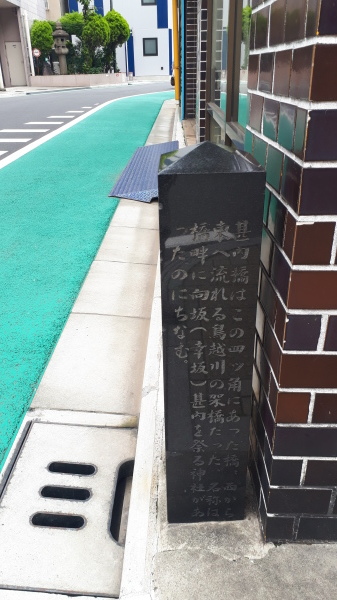 甚内橋はこの四ツ角にあった橋。西から
東へ流れる鳥越川の架橋だった。名称は
橋畔に向坂(幸坂)甚内を祭る神社があ
ったのにちなむ。